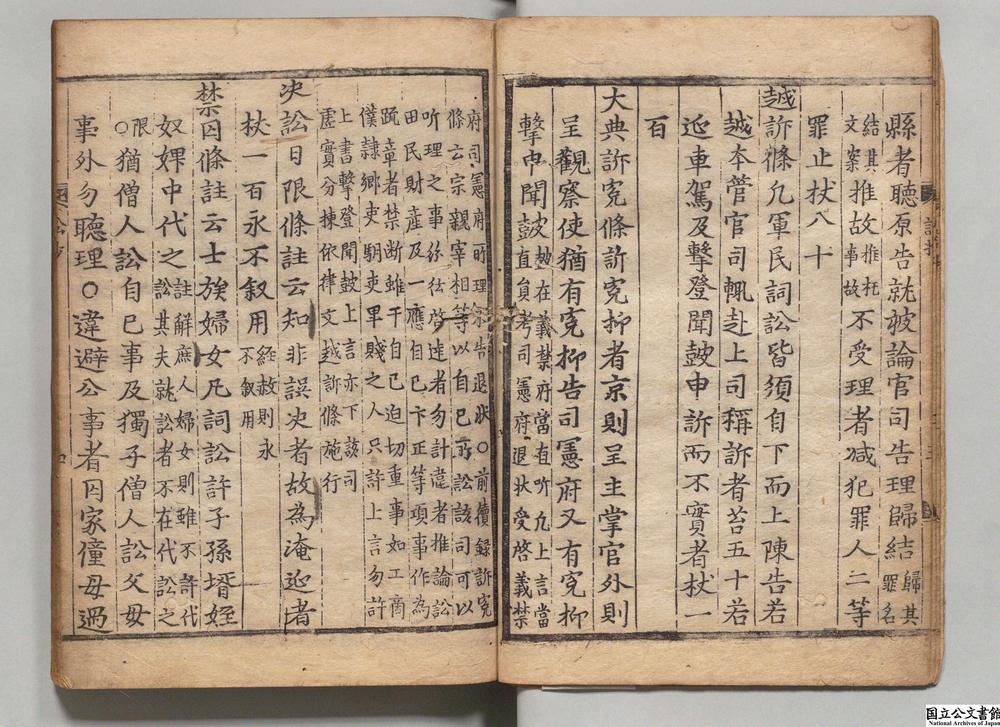 縣者聽原告就被論官司告理歸結歸其罪名
結其文案推故推托事故不受理者减犯罪人二等
罪止杖八十
越訴條凡軍民詞訟皆須自下而上陳告若
越本管官司輒赴上司稱訴者笞五十若
迎車駕及擊登聞皷申訴而不實者杖一
百
大典訴寃條訴寃抑者京則呈主掌官外則
呈觀察使猶有寃抑告司憲府又有寃抑
擊申聞皷皷在義禁府當直听凡上言當直員考司憲府退状受啓義禁
府司憲府所理
告退状○前續録訴寃
條云宗親宰相等以自己所訟該司可以
听理之事紛紜啓達者勿計違者推論訟
田民財産及一應自己卞正等項事作為
䟽章者禁断雖干自己迫切重事如工商
僕隷郷吏馹吏卑賤之人只許上言勿許
上書擊登聞皷上言亦下該司
虚實分揀依律文越訴條施行
决訟日限條註云知非誤决者故為淹延者
杖一百永不叙用經赦則永不叙用
禁囚條註云士族婦女凡詞訟許子孫壻姪
奴婢中代之註解庶人婦女則雖不許代訟其夫就訟者不在代訟之
限○猶僧人訟自己事及獨子僧人訟父母
事外勿聽理○違避公事者囚家僮毋過
国立公文書館
National Archives of Japan